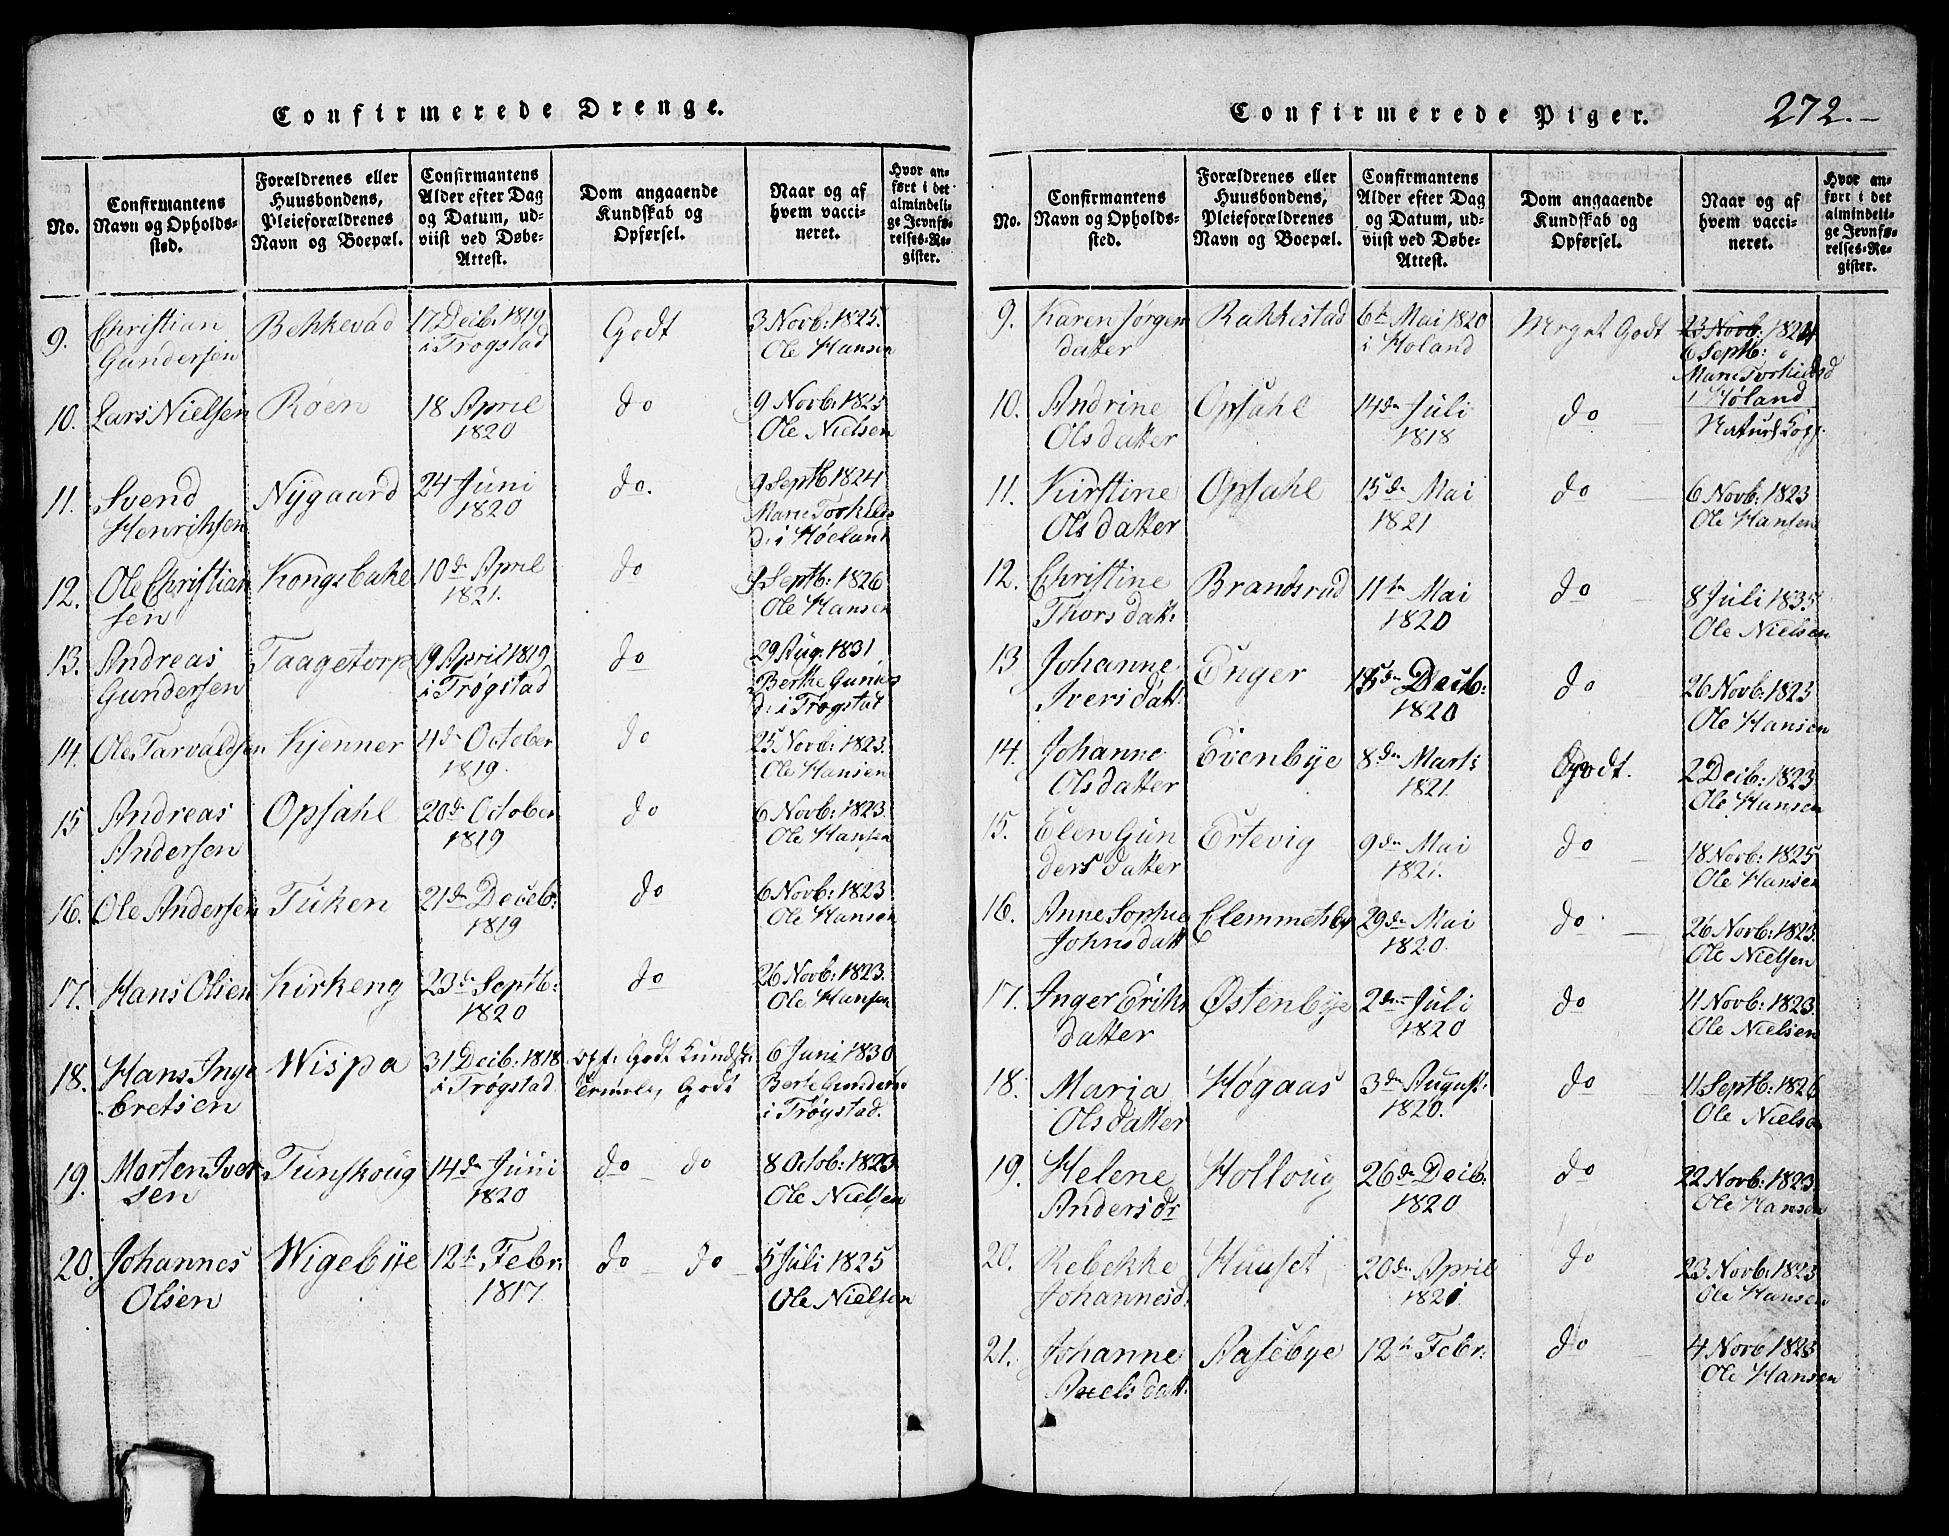 Confirmerede Drenge.
No.
Confirmantens Navn og Opholds-sted.
Forældrenes eller Huusbondens, Pleieforældrenes Navn og Boepæl.
Confirmantens Alder efter Dag og Datum, ud-viist ved Døbe-Attest.
Dom angaaende Kundskab og Opførsel.
Naar og af hvem vacci-neret.
Hvor an-ført i det almindeli-ge Jevnfø-relses-Re-gister.
9. Christian Gundersen Bekkevad 17 Decb: 1819 i Trogstad Godt 3 Novb: 1825. Ole Hansen
10. Lars Nielsen Röen 18 April 1820 do 9 Novb: 1825 Ole Nielsen
11. Svend Henriksen Nygaard 24 Juni 1820 do. 9 Septb 1824 Marie Torkilds D: i Høeland
12. Ole Christiansen Kongsbakke 10de April 1821. do Septb: 1826 Ole Hansen
13. Andreas Gundersen Taagetorp 19 April 1819 i Trøgstad do 29 Aug. 1831 Berthe Gunders D: i Trøgstad
14. Ole Tarvaldsen Kjenner 4de October 1819. do 25 Novb: 1823. Ole Hansen
15 Andreas Andersen Opsahl 20de October 1819 do 6 Novb: 1823. Ole Hansen
16. Ole Andersen Tuken 21de Deceb: 1819 do 6 Novb: 1823 Ole Hansen
17. Hans Olsen Kirkeng 23de Septb: 1820 do 26 Novb: 1823. Ole Hansen
18. Hans Ingebretsen Wispa 31 Decb: 1818 i Trøgstad. Opf: Godt Kundsk: Godt 6 Juni 1830 Berte Gunders i Trøgstad.
19. Morten Iversen Tunskoug 14de Juni 1820 do do 8 Octob: 1823 Ole Nielsen
20. Johannes Olsen Wigebye 12te Febr: 1817 do do 5 Juli 1825 Ole Nielsen
Confirmerede Piger.
272.
No.
Confirmantens Navn og Opholds-sted.
Forældrenes eller Huusbondens, Pleieforældrenes Navn og Boepæl.
Confirmantens Alder efter Dag og Datum, ud-viist ved Døbe-Attest.
Dom angaaende Kundskab og Opførsel.
Naar og af hvem vacci-neret.
Hvor an-ført i det almindeli-ge Jevnfø-relses-Re-gister.
9. Karen Jørgensdatter Rakkestad 6te Mai 1820 i Høland Meget Godt 23 Novb: 1824 6 Septb: Marie Torkildsd i Høland
10. Andrine Olsdatter Opsahl 14de Juli 1818 do Naturl Kopp:
11. Kirstine Olsdatter Opsahl 15de Mai 1821 do 6 Novb: 1823 Ole Hansen
12. Christine Thorsdatt: Brandsrud 11te Mai 1820 do 8 Juli 1835 Ole Nielsen
13 Johanne Iversdatt: Enger 15de Decb: 1820 do 26 Novb: 1823 Ole Hansen
14. Johanne Olsdatter Evenbye 8de Marts 1821. Godt. 2 Decb: 1823 Ole Hansen
15. Elen Gundersdatter Ertevig 9de Mai 1821. do 18 Novb: 1825 Ole Hansen
16. Anne Sophie Johnsdatt Clemmetsby 29de Mai 1820. do 26 Novb: 1823. Ole Nielsen
17. Inger Eriksdatter Østenbye 2den Juli 1820 do 11 Novb: 1823. Ole Nielsen
18. Maria Olsdatter Høgaas 3de August: 1820. do 11 Septb: 1826 Ole Nielsen
19. Helene Andersdr Holloug 26de Decb: 1820 do 22 Novb: 1823. Ole Hansen
20. Rebekke Johannesd: Huuset 20de April 1821 do 23 Novb: 1823 Ole Hansen
21. Johanne Axelsdatt: Aasebye 12te Febr: do 4 Novb 1825 Ole Hansen